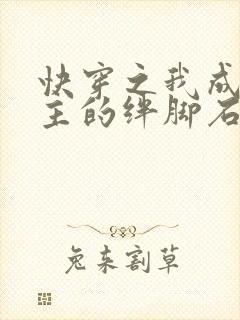 快穿之我成
主的绊脚石
兔来割草